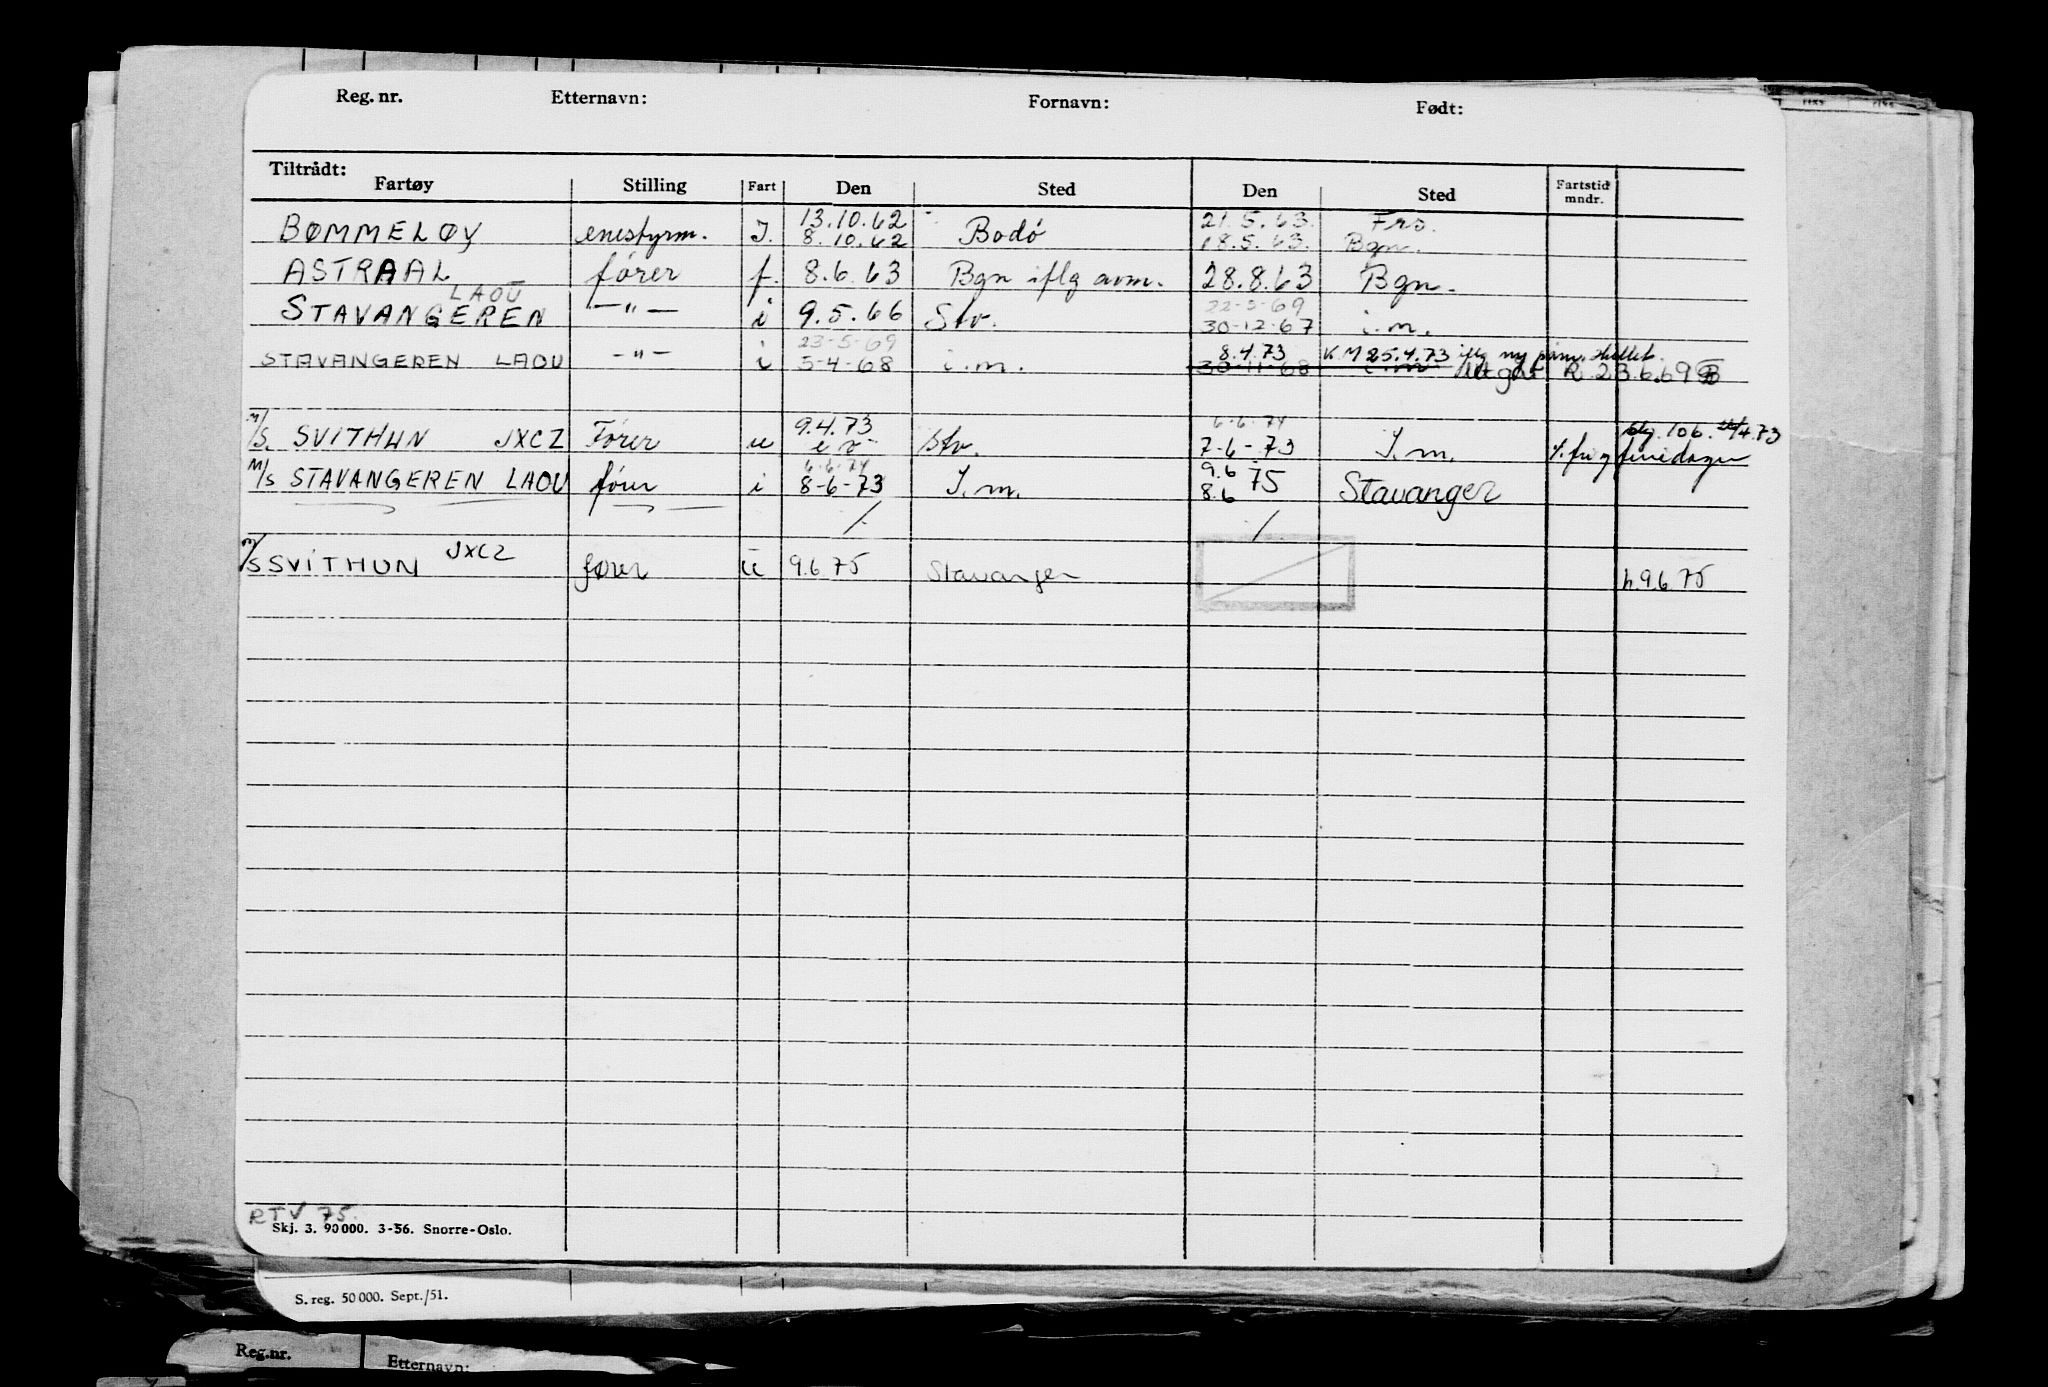 Reg. nr. Etternavn: Fornavn: Født:
Tiltrådt:
Fartøy Stilling Fart Den Sted Den Sted Fartstid mndr.
13.10.62 21.5.63. Fro.
BØMMELØY enestyrm. I. 8.10.62 Bodö 18.5.63. Bgn.
ASTRAAL förer f. 8.6.63 Bgn iflg avm. 28.8.63 Bgn.
LAOU 22-5-69
STAVANGEREN —"— i 9.5.66 Stv. 30-12-67 i.m.
23-5-69 8.4.73 KM 25.4.73 iflg ny
STAVANGEREN LAOU —"— i 5-4-68 i.m. 30-11-68 i.m. Utgår R. 23.6.69
9.4.73 6-6-74 106. 4.73
M/S. SVITHUN JXCZ Förer u Stv. 7-6-73 I.m. feriedager
6-6-74 9.6
M/S STAVANGEREN LAOU förer i 8-6-73 I.m. 8.6 75 Stavanger
M/S SVITHUN JXCZ fører u 9.6 75 Stavanger h.9.6 75
RTV 75.
Skj. 3. 90 000. 3-56. Snorre-Oslo.
S. reg. 50 000. Sept./51.
Reg.nr. Etternavn: